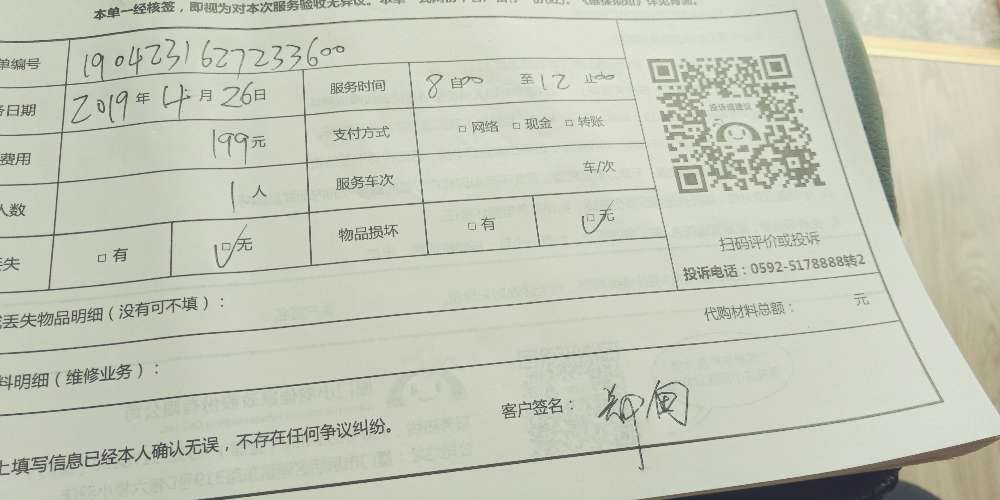 本单一经核签，即视为对本次服务验收无异议。本单一式两份
单编号 1904231627233600
务日期 2019年4月26日 服务时间 8自00 至12止00
费用 199元 支付方式 □网络 □现金 □转账
人数 1人 服务车次 车/次
丢失 □有 □无 物品损坏 □有 □无
投诉或建议
扫码评价或投诉
投诉电话：0592-5178888转2
丢失物品明细（没有可不填）：
代购材料总额： 元
料明细（维修业务）：
客户签名：
上填写信息已经本人确认无误，不存在任何争议纠纷。